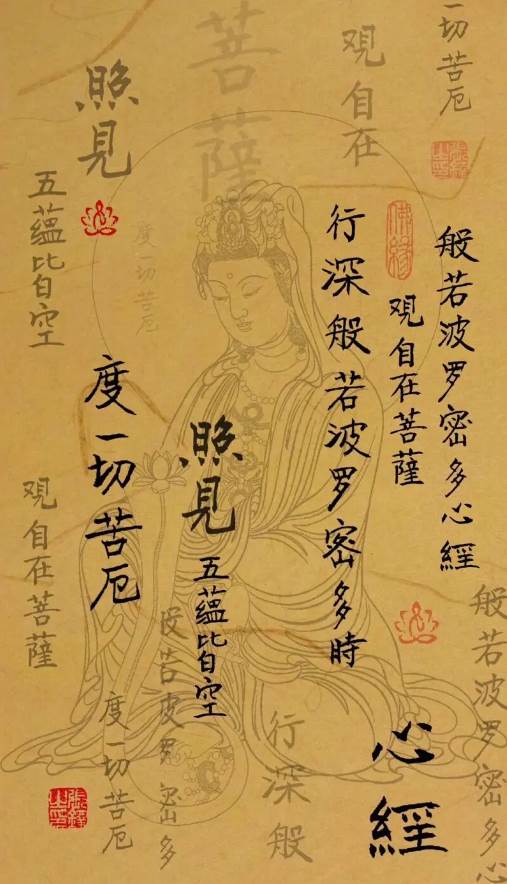 一切苦厄
般若波罗密多心經
般若波罗密多心
佛缘
観自在菩薩
観自在
行深般若波罗密多時
心經
菩薩
行深般
照見
五蘊皆空
度一切苦厄
般若波罗密多
照見
度一切苦厄
度一切苦厄
五蘊皆空
観自在菩薩